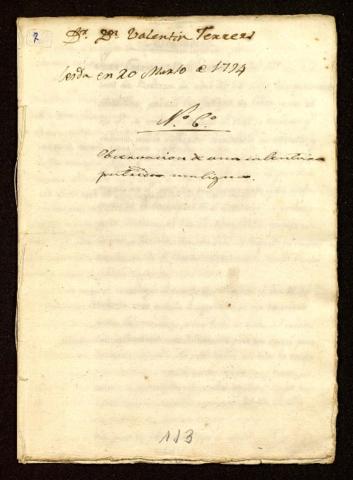 2
Dr. Dn. Valentin Terrers
leida en 20 Marzo de 1794
N.o 6.o
Observacion de una calentura
putrido maligna.
113